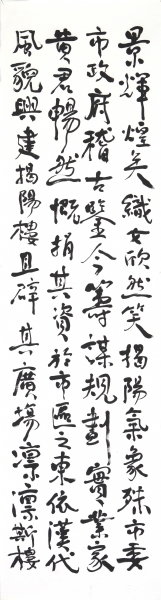 景輝煌矣織女欣然笑揭陽氣象殊市委
市政府稽古鑒今籌謀規劃實業家
黄君暢然慨捐其資於市區之東依漢代
風貌興建揭陽樓且辟其廣場凛凛斯樓